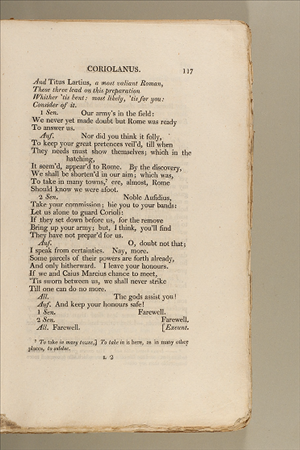 CORIOLANUS. 117
And Titus Lartius, a most valiant Roman,
These three lead on this preparation
Whither 'tis bent: most likely, 'tis for you:
Consider of it.
1 Sen. Our army's in the field:
We never yet made doubt but Rome was ready
To answer us.
Auf. Nor did you think it folly,
To keep your great pretences veil'd, till when
They needs must show themselves; which in the
hatching,
It seem'd, appear'd to Rome. By the discovery,
We shall be shorten'd in our aim; which was,
To take in many towns,² ere, almost, Rome
Should know we were afoot.
2 Sen. Noble Aufidius,
Take your commission; hie you to your bands:
Let us alone to guard Corioli:
If they set down before us, for the remove
Bring up your army; but, I think, you'll find
They have not prepar'd for us.
Auf. O, doubt not that;
I speak from certainties. Nay, more.
Some parcels of their powers are forth already,
And only hitherward. I leave your honours.
If we and Caius Marcius chance to meet,
'Tis sworn between us, we shall never strike
Till one can do no more.
All. The gods assist you!
Auf. And keep your honours safe!
1 Sen. Farewell.
2 Sen. Farewell.
All. Farewell. [Exeunt.
² To take in many towns,] To take in is here, as in many other
places, to subdue.